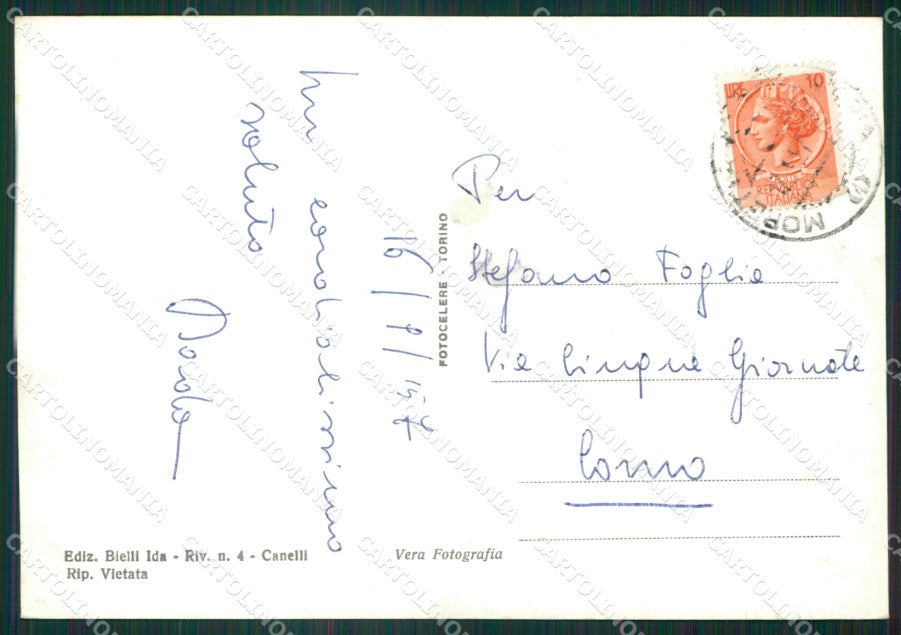 Un cordialissimo
saluto
16/9/957
Per
Stefano Foglia
Via Cinque Giornate
Como
FOTOCELERE - TORINO
Ediz. Bielli Ida - Riv. n. 4 - Canelli
Rip. Vietata
Vera Fotografia
LIRE 10
REPUBBLICA
ITALIANA
CARTOLINOMANIA